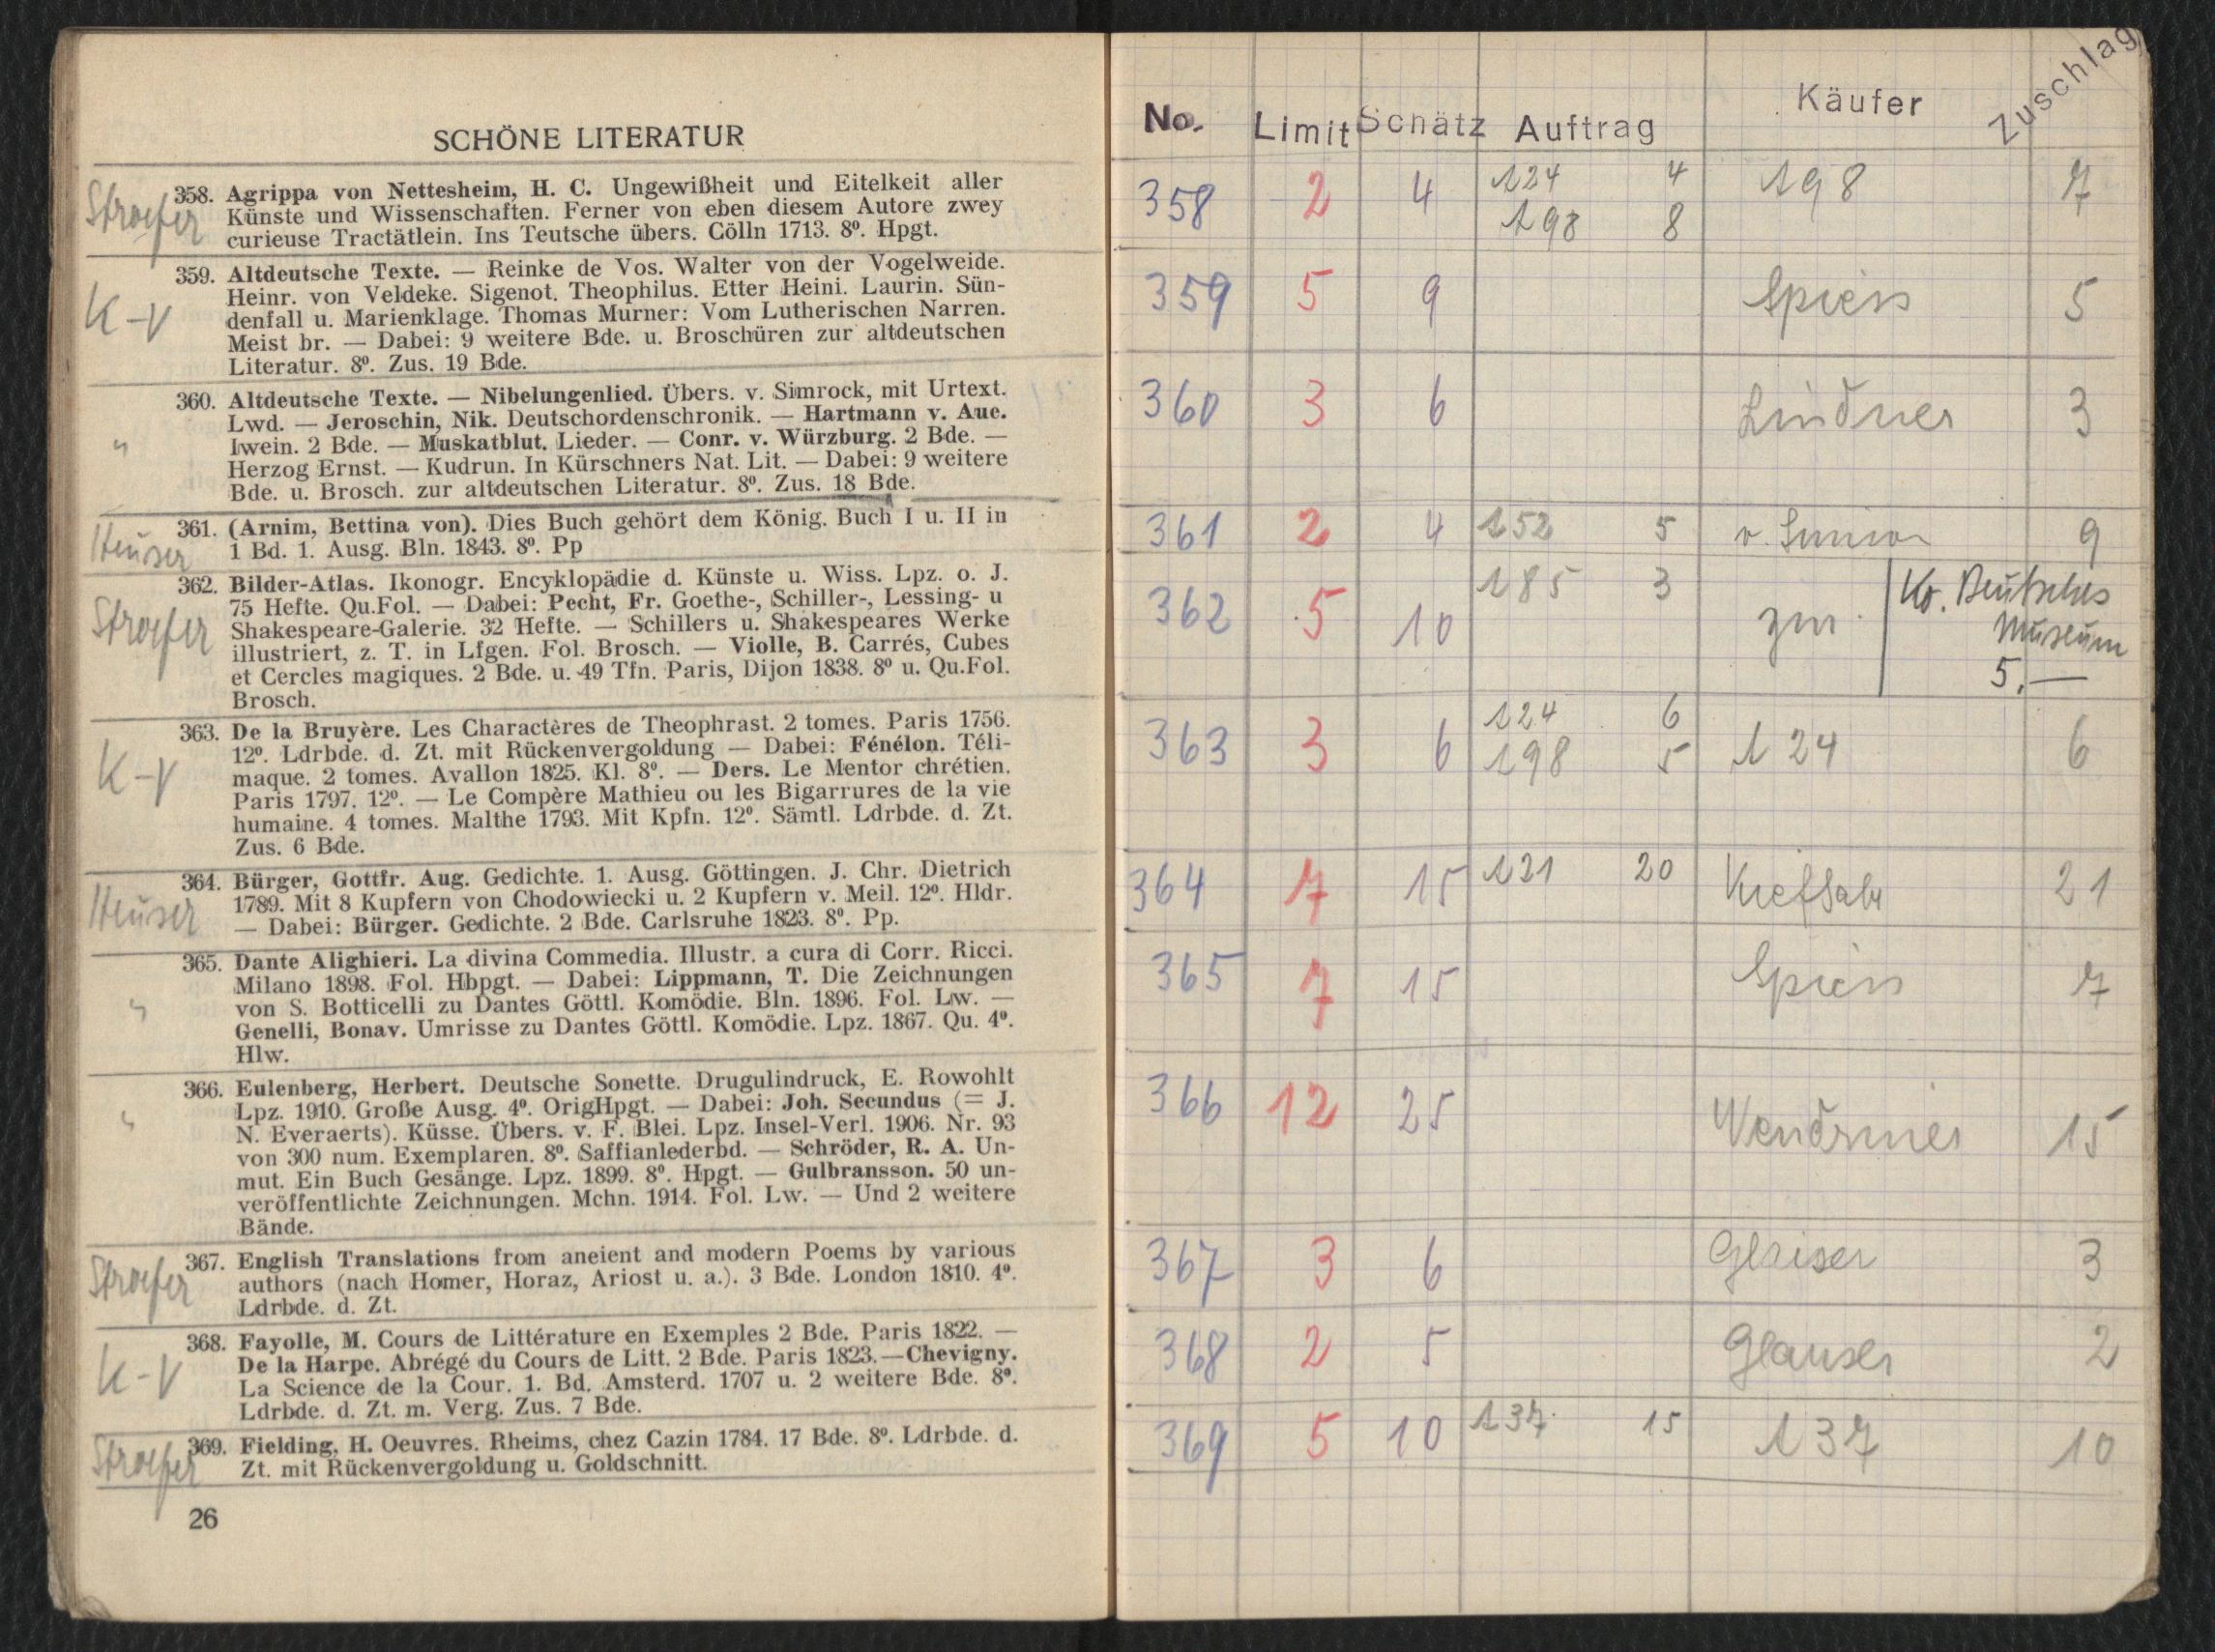 SCHÖNE LITERATUR
Stroefer
358. Agrippa von Nettesheim, H. C. Ungewißheit und Eitelkeit aller
Künste und Wissenschaften. Ferner von eben diesem Autore zwey
curieuse Tractätlein. Ins Teutsche übers. Cölln 1713. 8º. Hpgt.
K-V
359. Altdeutsche Texte. — Reinke de Vos. Walter von der Vogelweide.
Heinr. von Veldeke. Sigenot. Theophilus. Etter Heini. Laurin. Sün-
denfall u. Marienklage. Thomas Murner: Vom Lutherischen Narren.
Meist br. — Dabei: 9 weitere Bde. u. Broschüren zur altdeutschen
Literatur. 8º. Zus. 19 Bde.
"
360. Altdeutsche Texte. — Nibelungenlied. Übers. v. Simrock, mit Urtext.
Lwd. — Jeroschin, Nik. Deutschordenschronik. — Hartmann v. Aue.
Iwein. 2 Bde. — Muskatblut. Lieder. — Conr. v. Würzburg. 2 Bde. —
Herzog Ernst. — Kudrun. In Kürschners Nat. Lit. — Dabei: 9 weitere
Bde. u. Brosch. zur altdeutschen Literatur. 8º. Zus. 18 Bde.
Heuser
361. (Arnim, Bettina von). Dies Buch gehört dem König. Buch I u. II in
1 Bd. 1. Ausg. Bln. 1843. 8º. Pp
Stroefer
362. Bilder-Atlas. Ikonogr. Encyklopädie d. Künste u. Wiss. Lpz. o. J.
75 Hefte. Qu.Fol. — Dabei: Pecht, Fr. Goethe-, Schiller-, Lessing- u
Shakespeare-Galerie. 32 Hefte. — Schillers u. Shakespeares Werke
illustriert, z. T. in Lfgen. Fol. Brosch. — Violle, B. Carrés, Cubes
et Cercles magiques. 2 Bde. u. 49 Tfn. Paris, Dijon 1838. 8º u. Qu.Fol.
Brosch.
K-V
363. De la Bruyère. Les Charactères de Theophrast. 2 tomes. Paris 1756.
12º. Ldrbde. d. Zt. mit Rückenvergoldung — Dabei: Fénélon. Téli-
maque. 2 tomes. Avallon 1825. Kl. 8º. — Ders. Le Mentor chrétien.
Paris 1797. 12º. — Le Compère Mathieu ou les Bigarrures de la vie
humaine. 4 tomes. Malthe 1793. Mit Kpfn. 12º. Sämtl. Ldrbde. d. Zt.
Zus. 6 Bde.
Heuser
364. Bürger, Gottfr. Aug. Gedichte. 1. Ausg. Göttingen. J. Chr. Dietrich
1789. Mit 8 Kupfern von Chodowiecki u. 2 Kupfern v. Meil. 12º. Hldr.
— Dabei: Bürger. Gedichte. 2 Bde. Carlsruhe 1823. 8º. Pp.
"
365. Dante Alighieri. La divina Commedia. Illustr. a cura di Corr. Ricci.
Milano 1898. Fol. Hbpgt. — Dabei: Lippmann, T. Die Zeichnungen
von S. Botticelli zu Dantes Göttl. Komödie. Bln. 1896. Fol. Lw. —
Genelli, Bonav. Umrisse zu Dantes Göttl. Komödie. Lpz. 1867. Qu. 4º.
Hlw.
"
366. Eulenberg, Herbert. Deutsche Sonette. Drugulindruck, E. Rowohlt
Lpz. 1910. Große Ausg. 4º. OrigHpgt. — Dabei: Joh. Secundus (= J.
N. Everaerts). Küsse. Übers. v. F. Blei. Lpz. Insel-Verl. 1906. Nr. 93
von 300 num. Exemplaren. 8º. Saffianlederbd. — Schröder, R. A. Un-
mut. Ein Buch Gesänge. Lpz. 1899. 8º. Hpgt. — Gulbransson. 50 un-
veröffentlichte Zeichnungen. Mchn. 1914. Fol. Lw. — Und 2 weitere
Bände.
Stroefer
367. English Translations from aneient and modern Poems by various
authors (nach Homer, Horaz, Ariost u. a.). 3 Bde. London 1810. 4º.
Ldrbde. d. Zt.
K-V
368. Fayolle, M. Cours de Littérature en Exemples 2 Bde. Paris 1822. —
De la Harpe. Abrégé du Cours de Litt. 2 Bde. Paris 1823.—Chevigny.
La Science de la Cour. 1. Bd. Amsterd. 1707 u. 2 weitere Bde. 8º.
Ldrbde. d. Zt. m. Verg. Zus. 7 Bde.
Stroefer
369. Fielding, H. Oeuvres. Rheims, chez Cazin 1784. 17 Bde. 8º. Ldrbde. d.
Zt. mit Rückenvergoldung u. Goldschnitt.
26
No. Limit Schätz Auftrag Käufer Zuschlag
358 2 4 124 4 198 7
198 8
359 5 9 Spiess 5
360 3 6 Lindner 3
361 2 4 152 5 v. 9
362 5 10 185 3 zur. Kv. Deutsches
Museum
5.—
363 3 6 124 6 124 6
198 5
364 7 15 121 20 21
365 7 15 Spiess 7
366 12 25 Wendriner 15
367 3 6 3
368 2 5 Glauser 2
369 5 10 137 15 137 10